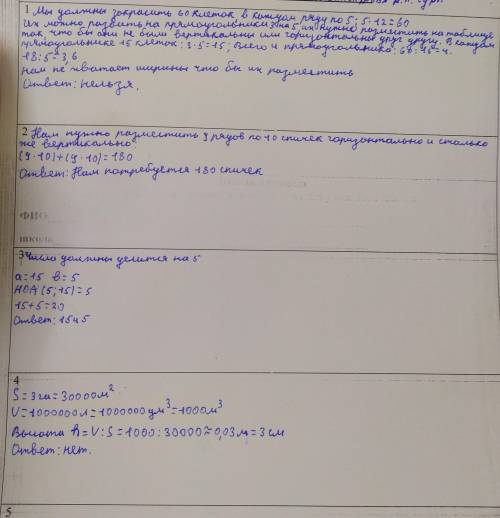 1 Мы должны закрасить 60 клеток в каждом ряду по 5; 5·12=60
Их можно разбить на прямоугольники 3 на 5, их нужно разместить на таблице
так, что бы они не были вертикальны или горизонтальны друг другу. В каждом
прямоугольнике 15 клеток: 3·5=15; Всего 4 прямоугольника: 60:15=4.
18:5=3,6
Нам не хватает ширины что бы их разместить
Ответ: нельзя.
2 Нам нужно разместить 9 рядов по 10 спичек горизонтально и столько
же вертикально
(9·10)+(9·10)=180
Ответ: Нам потребуется 180 спичек
ФИО
школа
3 Числа должны делится на 5
a=15 b=5
НОД (5;15)=5
15+5=20
Ответ: 15 и 5
4
S=3га=30000м²
V=1000000л=1000000дм³=1000м³
Высота h=V:S=1000:30000≈0,03м=3см
Ответ: нет.
5